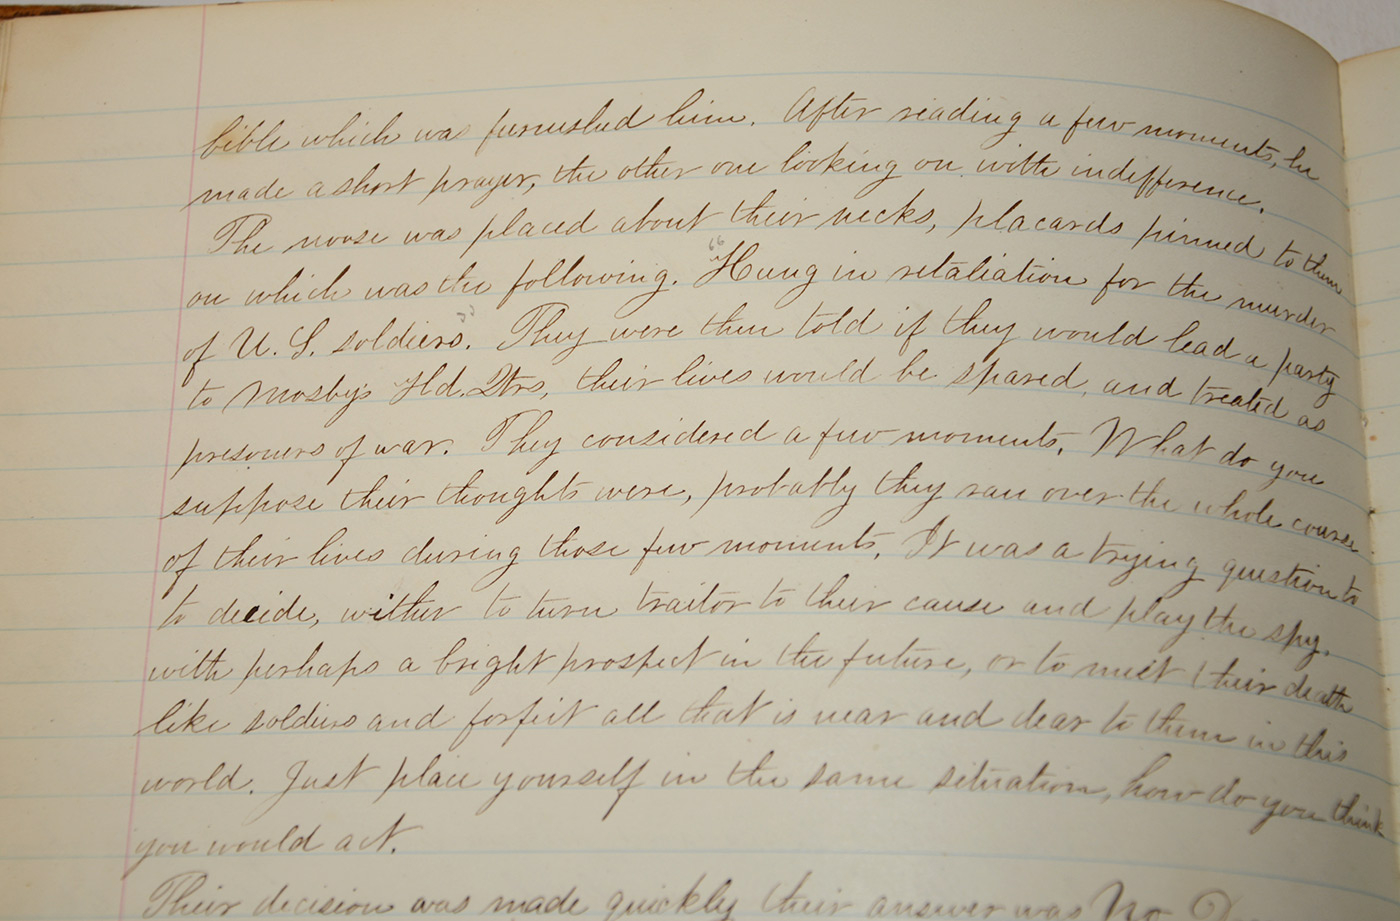 bible which was furnished him. After reading a few moments, he
made a short prayer, the other one looking on with indifference.
The noose was placed about their necks, placards pinned to them
on which was the following. "Hung in retaliation for the murder
of U. S. soldiers." They were then told if they would lead a party
to Mosby's Hd. Qtrs, their lives would be spared, and treated as
prisoners of war. They considered a few moments. What do you
suppose their thoughts were, probably they ran over the whole course
of their lives during those few moments. It was a trying question to
to decide, wither to turn traitor to their cause and play the spy.
with perhaps a bright prospect in the future, or to meet their death
like soldiers and forfeit all that is near and dear to them in this
world. Just place yourself in the same situation, how do you think
you would act.
Their decision was made quickly their answer was No